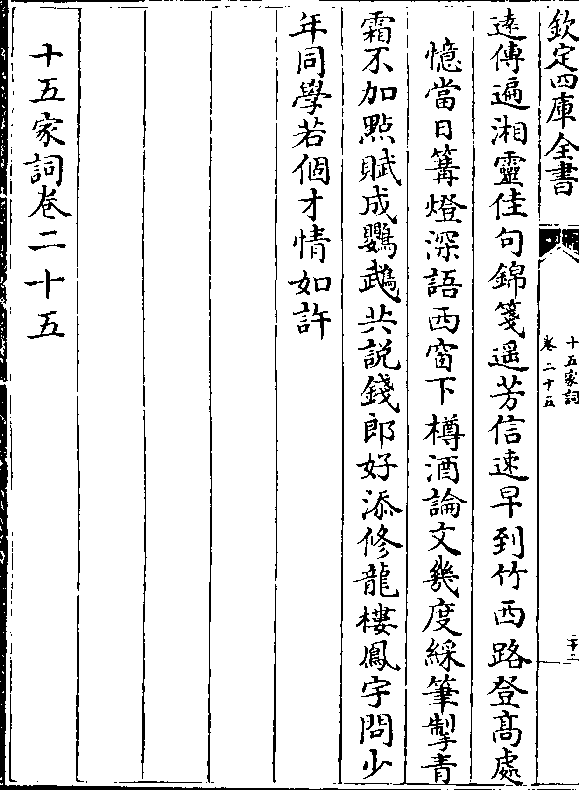 欽定四庫全書
十五家詞
卷二十五
二十二
遠傳遍湘靈佳句錦箋遥芳信速早到竹西路登髙處
憶當日篝燈深語西窗下樽酒論文幾度綵筆掣青
霜不加㸃賦成鸚鵡共説錢郎好添修龍樓鳳宇問少
年同學若個才情如許
十五家詞卷二十五